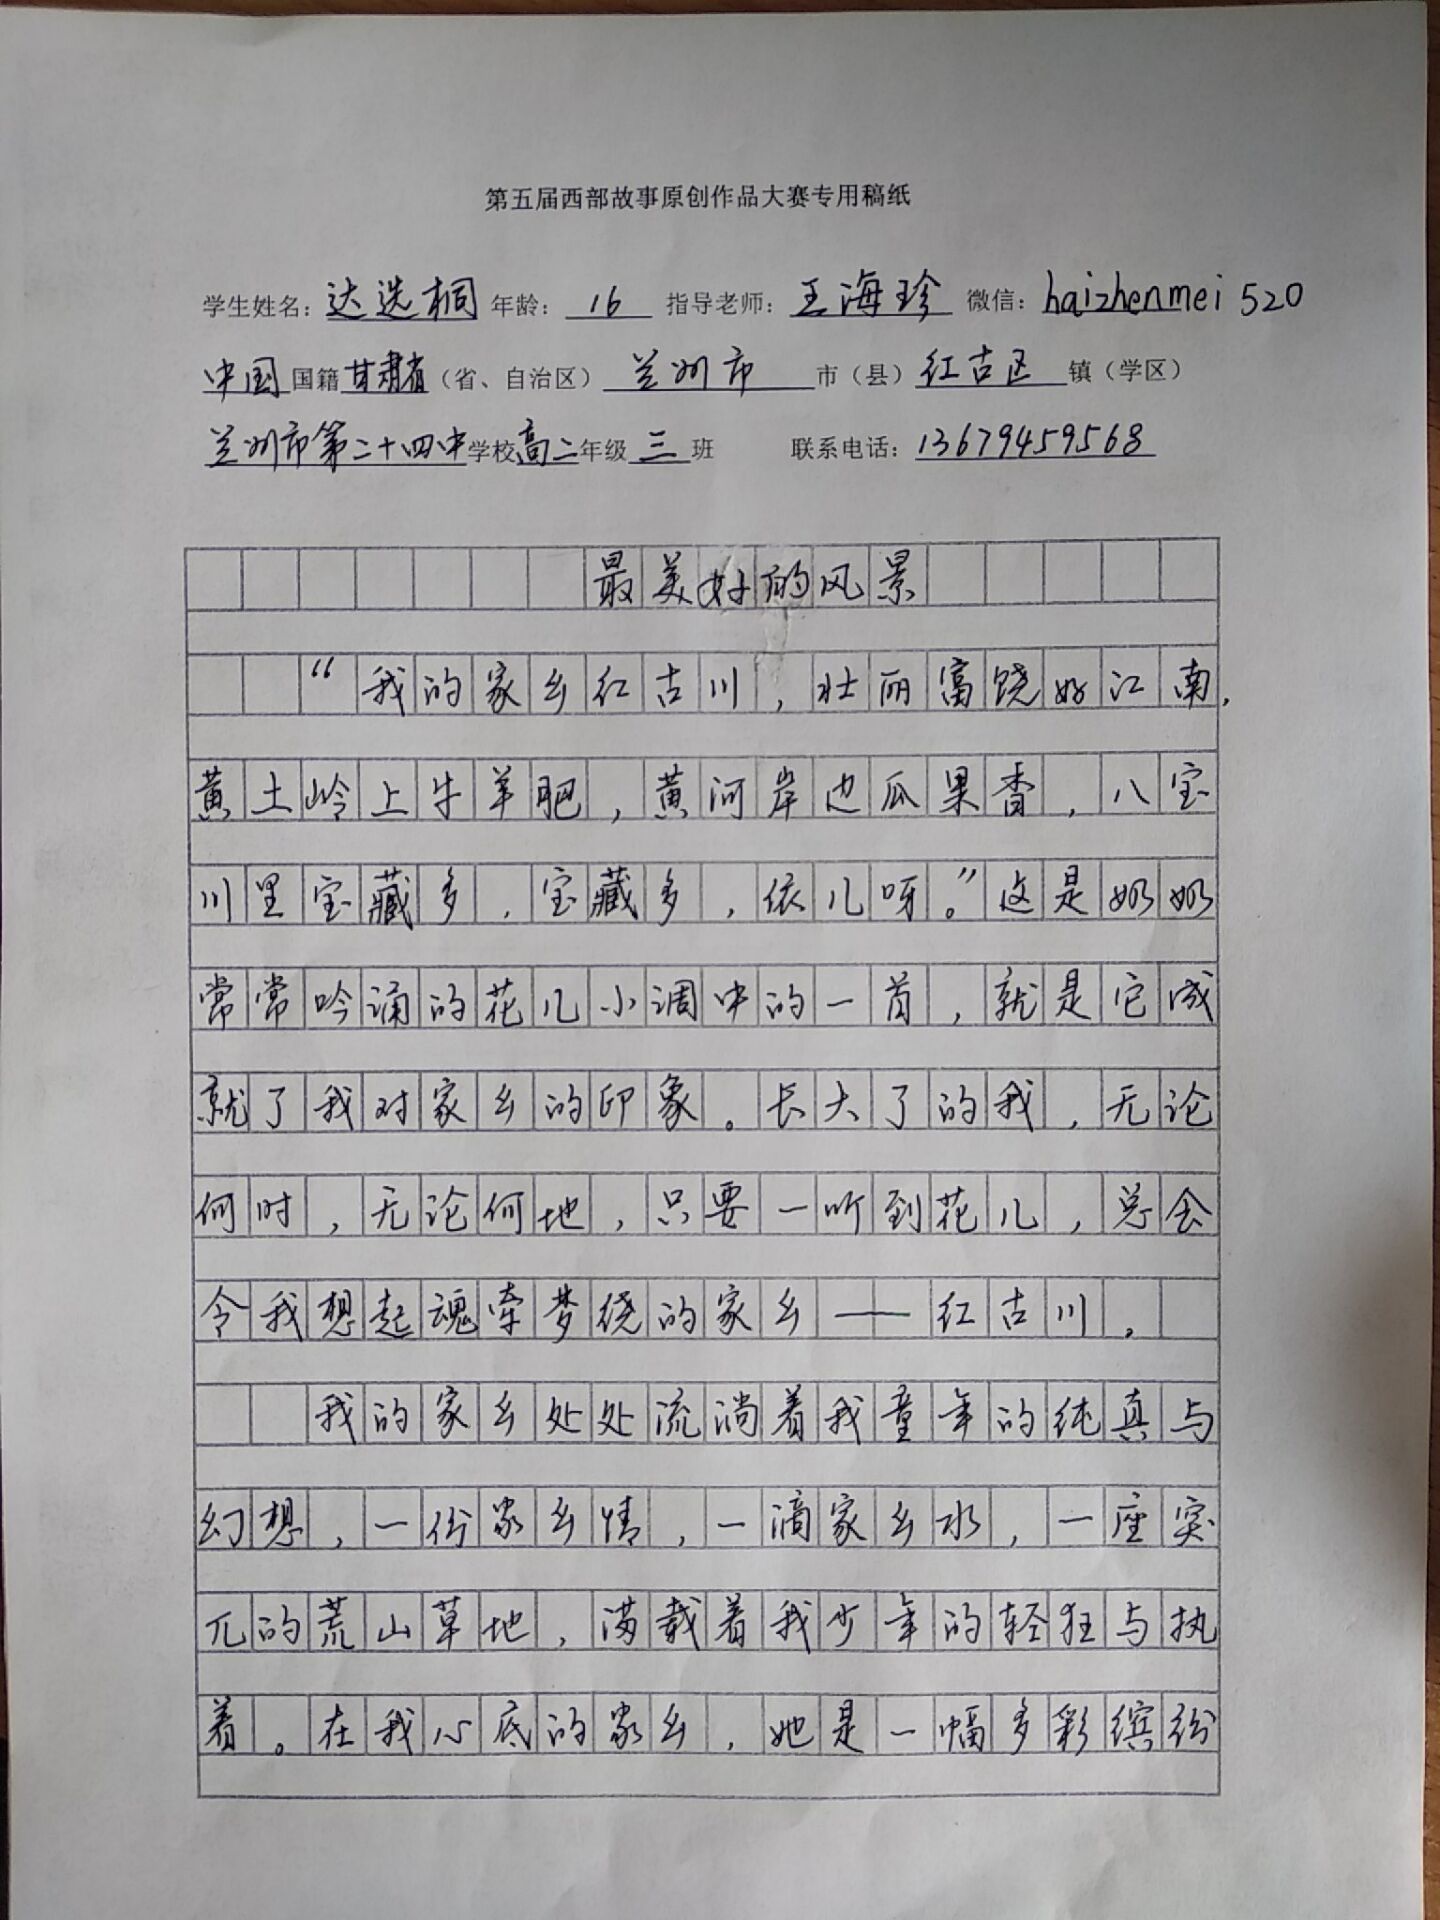 第五届西部故事原创作品大赛专用稿纸
学生姓名：达选桐 年龄： 16 指导老师：王海珍 微信：haizhenmei520
中国国籍甘肃省（省、自治区）兰州市市（县）红古区镇（学区）
兰州市第二十四中学校高二年级三班 联系电话：13679459568
最美好的风景
“我的家乡红古川，壮丽富饶好江南，
黄土岭上牛羊肥，黄河岸边瓜果香，八宝
川里宝藏多，宝藏多，依儿呀。”这是奶奶
常常吟诵的花儿小调中的一首，就是它成
就了我对家乡的印象。长大了的我，无论
何时，无论何地，只要一听到花儿，总会
令我想起魂牵梦绕的家乡——红古川。
我的家乡处处流淌着我童年的纯真与
幻想，一份家乡情，一滴家乡水，一座突
兀的荒山草地，满载着我少年的轻狂与执
着。在我心底的家乡，她是一幅多彩缤纷